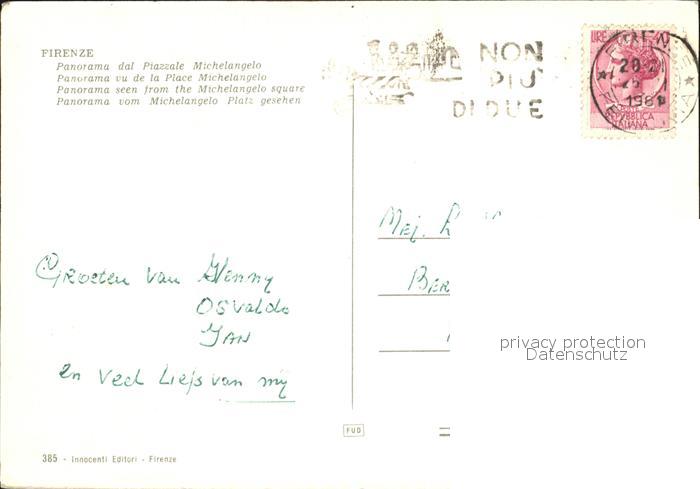 FIRENZE
Panorama dal Piazzale Michelangelo
Panorama vu de la Place Michelangelo
Panorama seen from the Michelangelo square
Panorama vom Michelangelo Platz gesehen
NON
PIÙ
DI DUE
LIRE
1981
REPUBBLICA
ITALIANA
Mej.
BER
Groeten van Wenny
Osvaldo
JAN
en veel Liefs van mij
privacy protection
Datenschutz
FUD
385 - Innocenti Editori - Firenze